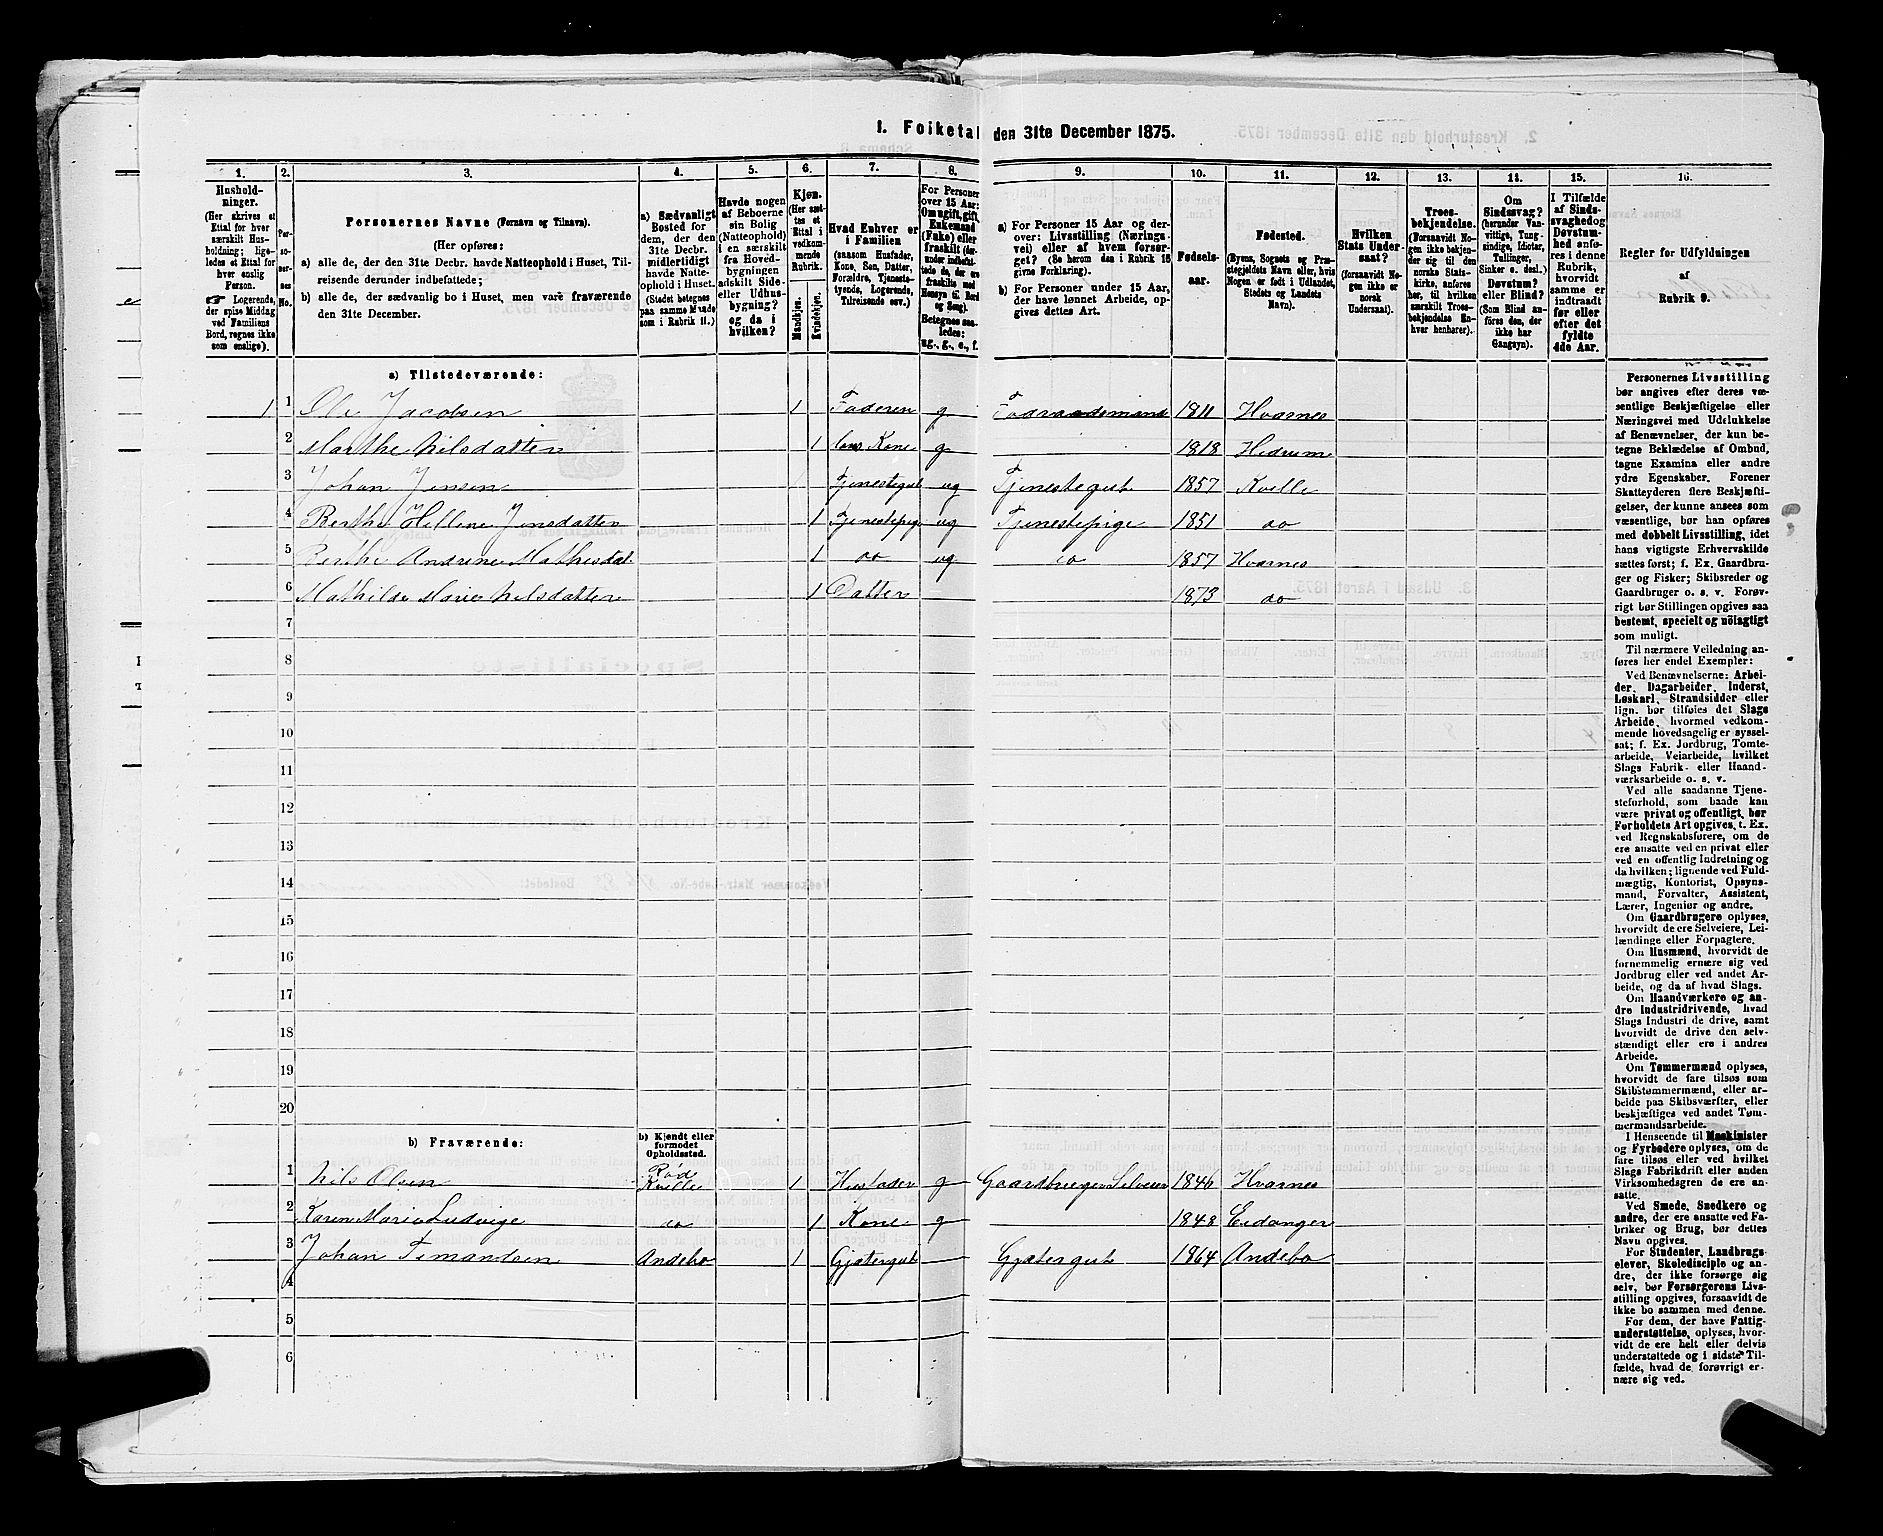 1. Folketal den 31te December 1875.
1. 2. 3. 4. 5. 6. 7. 8. 9. 10. 11. 12. 13. 14. 15. 16.
Hushold-
ninger.
(Her skrives et
Ettal for hver
særskilt Hus-
holdning; lige-
ledes et Ettal for
hver enslig
Person.
☛ Logerende,
der spise Middag
ved Familiens
Bord, regnes ikke
som enslige).
Per-
so-
ner-
nes
No.
Personernes Navne (Fornavn og Tilnavn).
(Her opføres:
a) alle de, der den 31te Decbr. havde Natteophold i Huset, Til-
reisende derunder indbefattede;
b) alle de, der sædvanlig bo i Huset, men vare fraværende
den 31te December.
a) Sædvanligt
Bosted for
dem, der den
31te Decbr.
midlertidigt
havde Natte-
ophold i Huset.
(Stedet betegnes
paa samme Maade
som i Rubrik 11.)
Havde nogen
af Beboerne
sin Bolig
(Natteophold)
i en særskilt
fra Hoved-
bygningen
adskilt Side-
eller Udhus-
bygning?
og da i
hvilken?
Kjøn.
(Her sæt-
tes et
Ettal i
vedkom-
mende
Rubrik.
Mandkjøn.
Kvindekjøn.
Hvad Enhver er
i Familien
(saasom Husfader,
Kone, Søn, Datter,
Forældre, Tjeneste-
tyende, Logerende,
Tilreisende osv.)
For Personer
over 15 Aar:
Om ugift, gift,
Enkemand
(Enke) eller
fraskilt
Betegnes saa-
ledes:
ug., g., e., f.
a) For Personer 15 Aar og der-
over: Livsstilling (Nærings-
vei) eller af hvem forsør-
get? (Se herom den i Rubrik 16
givne Forklaring).
b) For Personer under 15 Aar,
der have lønnet Arbeide, op-
gives dettes Art.
Fødsels-
aar.
Fødested.
(Byens, Sognets og Præ-
stegjeldets Navn eller, hvis
Nogen er født i Udlandet,
Stedets og Landets
Navn).
Hvilken
Stats Under-
saat?
(forsaavidt No-
gen ikke er
norsk
Undersaat).
Troes-
bekjendelse.
(Forsaavidt No-
gen ikke bekjen-
der sig til den
norske Stats-
kirke, anføres
her, til hvilken
særskilt Troes-
bekjendelse En-
hver henhører).
Om
Sindssvag?
(herunder Van-
vittige, Tung-
sindige, Idioter,
Tullinger,
Sinker o. desl.)
Døvstum?
eller Blind?
(Som Blind an-
føres den, der
ikke har
Gangsyn).
I Tilfælde
af Sinds-
svaghed og
Døvstum-
hed anfø-
res i denne
Rubrik,
hvorvidt
samme er
indtraadt
før eller
efter det
fyldte
4de Aar.
Regler for Udfyldningen
af
Rubrik 9.
a) Tilstedeværende:
1 1 Ole Jacobsen 1 Faderen g Føderaadsmand 1811 Hvarnes
2 Marthe Nilsdatter 1 hans Kone g 1818 Hedrum
3 Johan Jensen Tjenestegut ug Tjenestegut 1857 Kvelle
4 Berthe Hellene Jensdatter 1 Tjenestepige ug Tjenestepige 1851 do
5 Berthe Andrine Mathisdat. 1 do ug do 1857 Hvarnes
6 Mathilde Marie Nilsdatter 1 Datter 1873 do
7
8
9
10
11
12
13
14
15
16
17
18
19
20
b) Fraværende:
b) Kjendt eller
formodet
Opholdssted.
1 Nils Olsen Røde Kvelle 1 Husfader g Gaardbruger Selveier 1846 Hvarnes
2 Karen Marie Ludvige do 1 Kone g 1848 Eidanger
3 Johan Temandsen Andebo 1 Gjætergut Gjætergut 1864 Andebo
4
5
6
Personernes Livsstilling
bør angives efter deres væ-
sentlige Beskjæftigelse eller
Næringsvei med Udelukkelse
af Benævnelser, der kun be-
tegne Beklædelse af Ombud,
tagne Examina eller andre
ydre Egenskaber. Forener
Skatteyderen flere Beskjæfti-
gelser, der kunne ansees som
væsentlige, bør han opføres
med dobbelt Livsstilling, idet
hans vigtigste Erhvervskilde
sættes først; f. Ex. Gaardbru-
ger og Fisker; Skibsreder og
Gaardbruger o. s. v. Forøv-
rigt bør Stillingen opgives saa
bestemt, specielt og nøiagtigt
som muligt.
Til nærmere Veiledning an-
føres her endel Exempler:
Ved Benævnelserne: Arbei-
der, Dagarbeider, Inderst,
Løskarl, Strandsidder eller
lign. bør tilføies det Slags
Arbeide, hvormed vedkom-
mende hovedsagelig er syssel-
sat; f. Ex. Jordbrug, Tomte-
arbeide, Veiarbeide, hvilket
Slags Fabrik- eller Haand-
værksarbeide o. s. v.
Ved alle saadanne Tjene-
steforhold, som baade kan
være privat og offentligt, bør
Forholdets Art opgives, t. Ex.
ved Regnskabsførere, om de
ere ansatte ved en privat eller
ved en offentlig Indretning og
da hvilken; lignende ved Fuld-
mægtig, Kontorist, Opsyns-
mand, Forvalter, Assistent,
Lærer, Ingeniør og andre.
Om Gaardbrugere oplyses,
hvorvidt de ere Selveiere, Lei-
lændinge eller Forpagtere.
Om Husmænd, hvorvidt de
fornemmelig ernære sig ved
Jordbrug eller ved andet Ar-
beide, og da af hvad Slags.
Om Haandværkere og an-
dre Industridrivende, hvad
Slags Industri de drive, samt
hvorvidt de drive den selv-
stændigt eller ere i andres
Arbeide.
Om Tømmermænd oplyses,
hvorvidt de fare tilsøs som
Skibstømmermænd, eller ar-
beide paa Skibsværfter, eller
beskjæftiges ved andet Tøm-
mermandsarbeide.
I Henseende til Maskinister
og Fyrbødere oplyses, om de
fare tilsøs eller ved hvilket
Slags Fabrikdrift eller anden
Virksomhedsgren de ere an-
satte.
Ved Smede, Snedkere og
andre, der ere ansatte ved Fa-
briker og Brug, bør dettes
Navn opgives.
For Studenter, Landbrugs-
elever, Skoledisciple og an-
dre, der ikke forsørge sig
selv, bør Forsørgerens Livs-
stilling opgives, forsaavidt de
ikke bo sammen med denne.
For dem, der have Fattig-
understøttelse, oplyses, hvor-
vidt de ere helt eller delvis
understøttede og i sidste Til-
fælde, hvad de forøvrigt er-
nære sig ved.